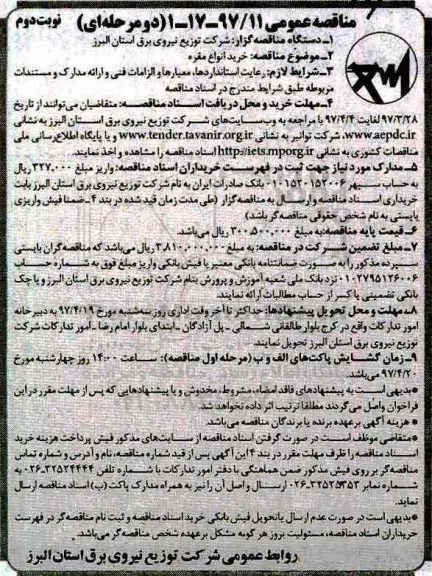 مناقصه عمومی ۹۷/۱۱–۱۷–۱ (دو مرحله‌ای)
نوبت دوم
۱- دستگاه مناقصه گزار: شرکت توزیع نیروی برق استان البرز
۲- موضوع مناقصه: خرید انواع مقره
۳- شرایط لازم: رعایت استانداردها، معیارها و الزامات فنی و ارائه مدارک و مستندات
مربوطه طبق شرایط مندرج در اسناد مناقصه
۴- مهلت خرید و محل دریافت اسناد مناقصه: متقاضیان می‌توانند از تاریخ
۹۷/۳/۲۸ لغایت ۹۷/۴/۴ با مراجعه به وب‌سایت‌های شرکت توزیع نیروی برق استان البرز به نشانی
www.aepdc.ir، شرکت توانیر به نشانی www.tender.tavanir.org.ir و یا پایگاه اطلاع رسانی ملی
مناقصات کشوری به نشانی http://iets.mporg.ir اسناد مناقصه را مشاهده و اخذ نمایند.
۵- مدارک مورد نیاز جهت ثبت در فهرست خریداران اسناد مناقصه: واریز مبلغ ۳۲۷,۰۰۰ ریال
به حساب سپهر ۰۱۰۱۵۳۰۱۵۲۰۰۶ بانک صادرات ایران به نام شرکت توزیع نیروی برق استان البرز بابت
خریداری اسناد مناقصه و ارسال به مناقصه گزار (طی مدت زمان قید شده در بند ۴ - ضمنا فیش واریزی
بایستی به نام شخص حقوقی مناقصه‌گر باشد)
۶- قیمت پایه مناقصه: به مبلغ ۳۰۰,۵۰۰,۰۰۰ ریال می‌باشد.
۷- مبلغ تضمین شرکت در مناقصه: به مبلغ ۳,۸۱۰,۰۰۰,۰۰۰ ریال می‌باشد که مناقصه گران بایستی
سپرده مذکور را به صورت ضمانتنامه بانکی معتبر یا فیش بانکی واریز مبلغ فوق به شماره حساب
۰۱۰۲۷۹۵۱۲۶۰۰۶ نزد بانک ملی شعبه آموزش و پرورش بنام شرکت توزیع نیروی برق استان البرز و یا چک
بانکی تضمینی یا کسر از حساب مطالبات ارائه نمایند.
۸- مهلت و محل تحویل پیشنهادها: حداکثر تا آخر وقت اداری روز سه‌شنبه مورخ ۹۷/۴/۱۹ به دبیرخانه
امور تدارکات واقع در کرج بلوار طالقانی شمالی - پل آزادگان - ابتدای بلوار امام رضا - امور تدارکات شرکت
توزیع نیروی برق استان البرز تحویل نمایند.
۹- زمان گشایش پاکت‌های الف و ب (مرحله اول مناقصه): ساعت ۱۴:۰۰ روز چهارشنبه مورخ
۹۷/۴/۲۰ می‌باشد.
* بدیهی است به پیشنهادهای فاقد امضاء، مشروط، مخدوش و یا پیشنهادهایی که پس از مهلت مقرر در این
فراخوان واصل می‌گردند مطلقا ترتیب اثر داده نخواهد شد.
* هزینه آگهی برعهده برنده یا برندگان مناقصه می‌باشد.
* متقاضی موظف است در صورت گرفتن اسناد مناقصه از سایت‌های مذکور فیش پرداخت هزینه خرید
اسناد مناقصه را ظرف مهلت مقرر در بند ۴ این آگهی پس از قید شماره مناقصه، نام و آدرس و شماره تماس
مناقصه‌گر بر روی فیش مذکور ضمن هماهنگی با دفتر امور تدارکات با شماره تلفن ۳۲۵۲۴۴۴۴-۰۲۶ به
شماره نمابر ۳۲۵۲۵۳۵۳-۰۲۶ ارسال و اصل آن را نیز به همراه مدارک پاکت (ب) اسناد مناقصه ارسال
نماید.
* بدیهی است در صورت عدم ارسال یا تحویل فیش بانکی خرید اسناد مناقصه و ثبت نام مناقصه‌گر در فهرست
خریداران اسناد مناقصه، مسئولیت بروز هر گونه مشکل برعهده شخص مناقصه گر می‌باشد.
روابط عمومی شرکت توزیع نیروی برق استان البرز